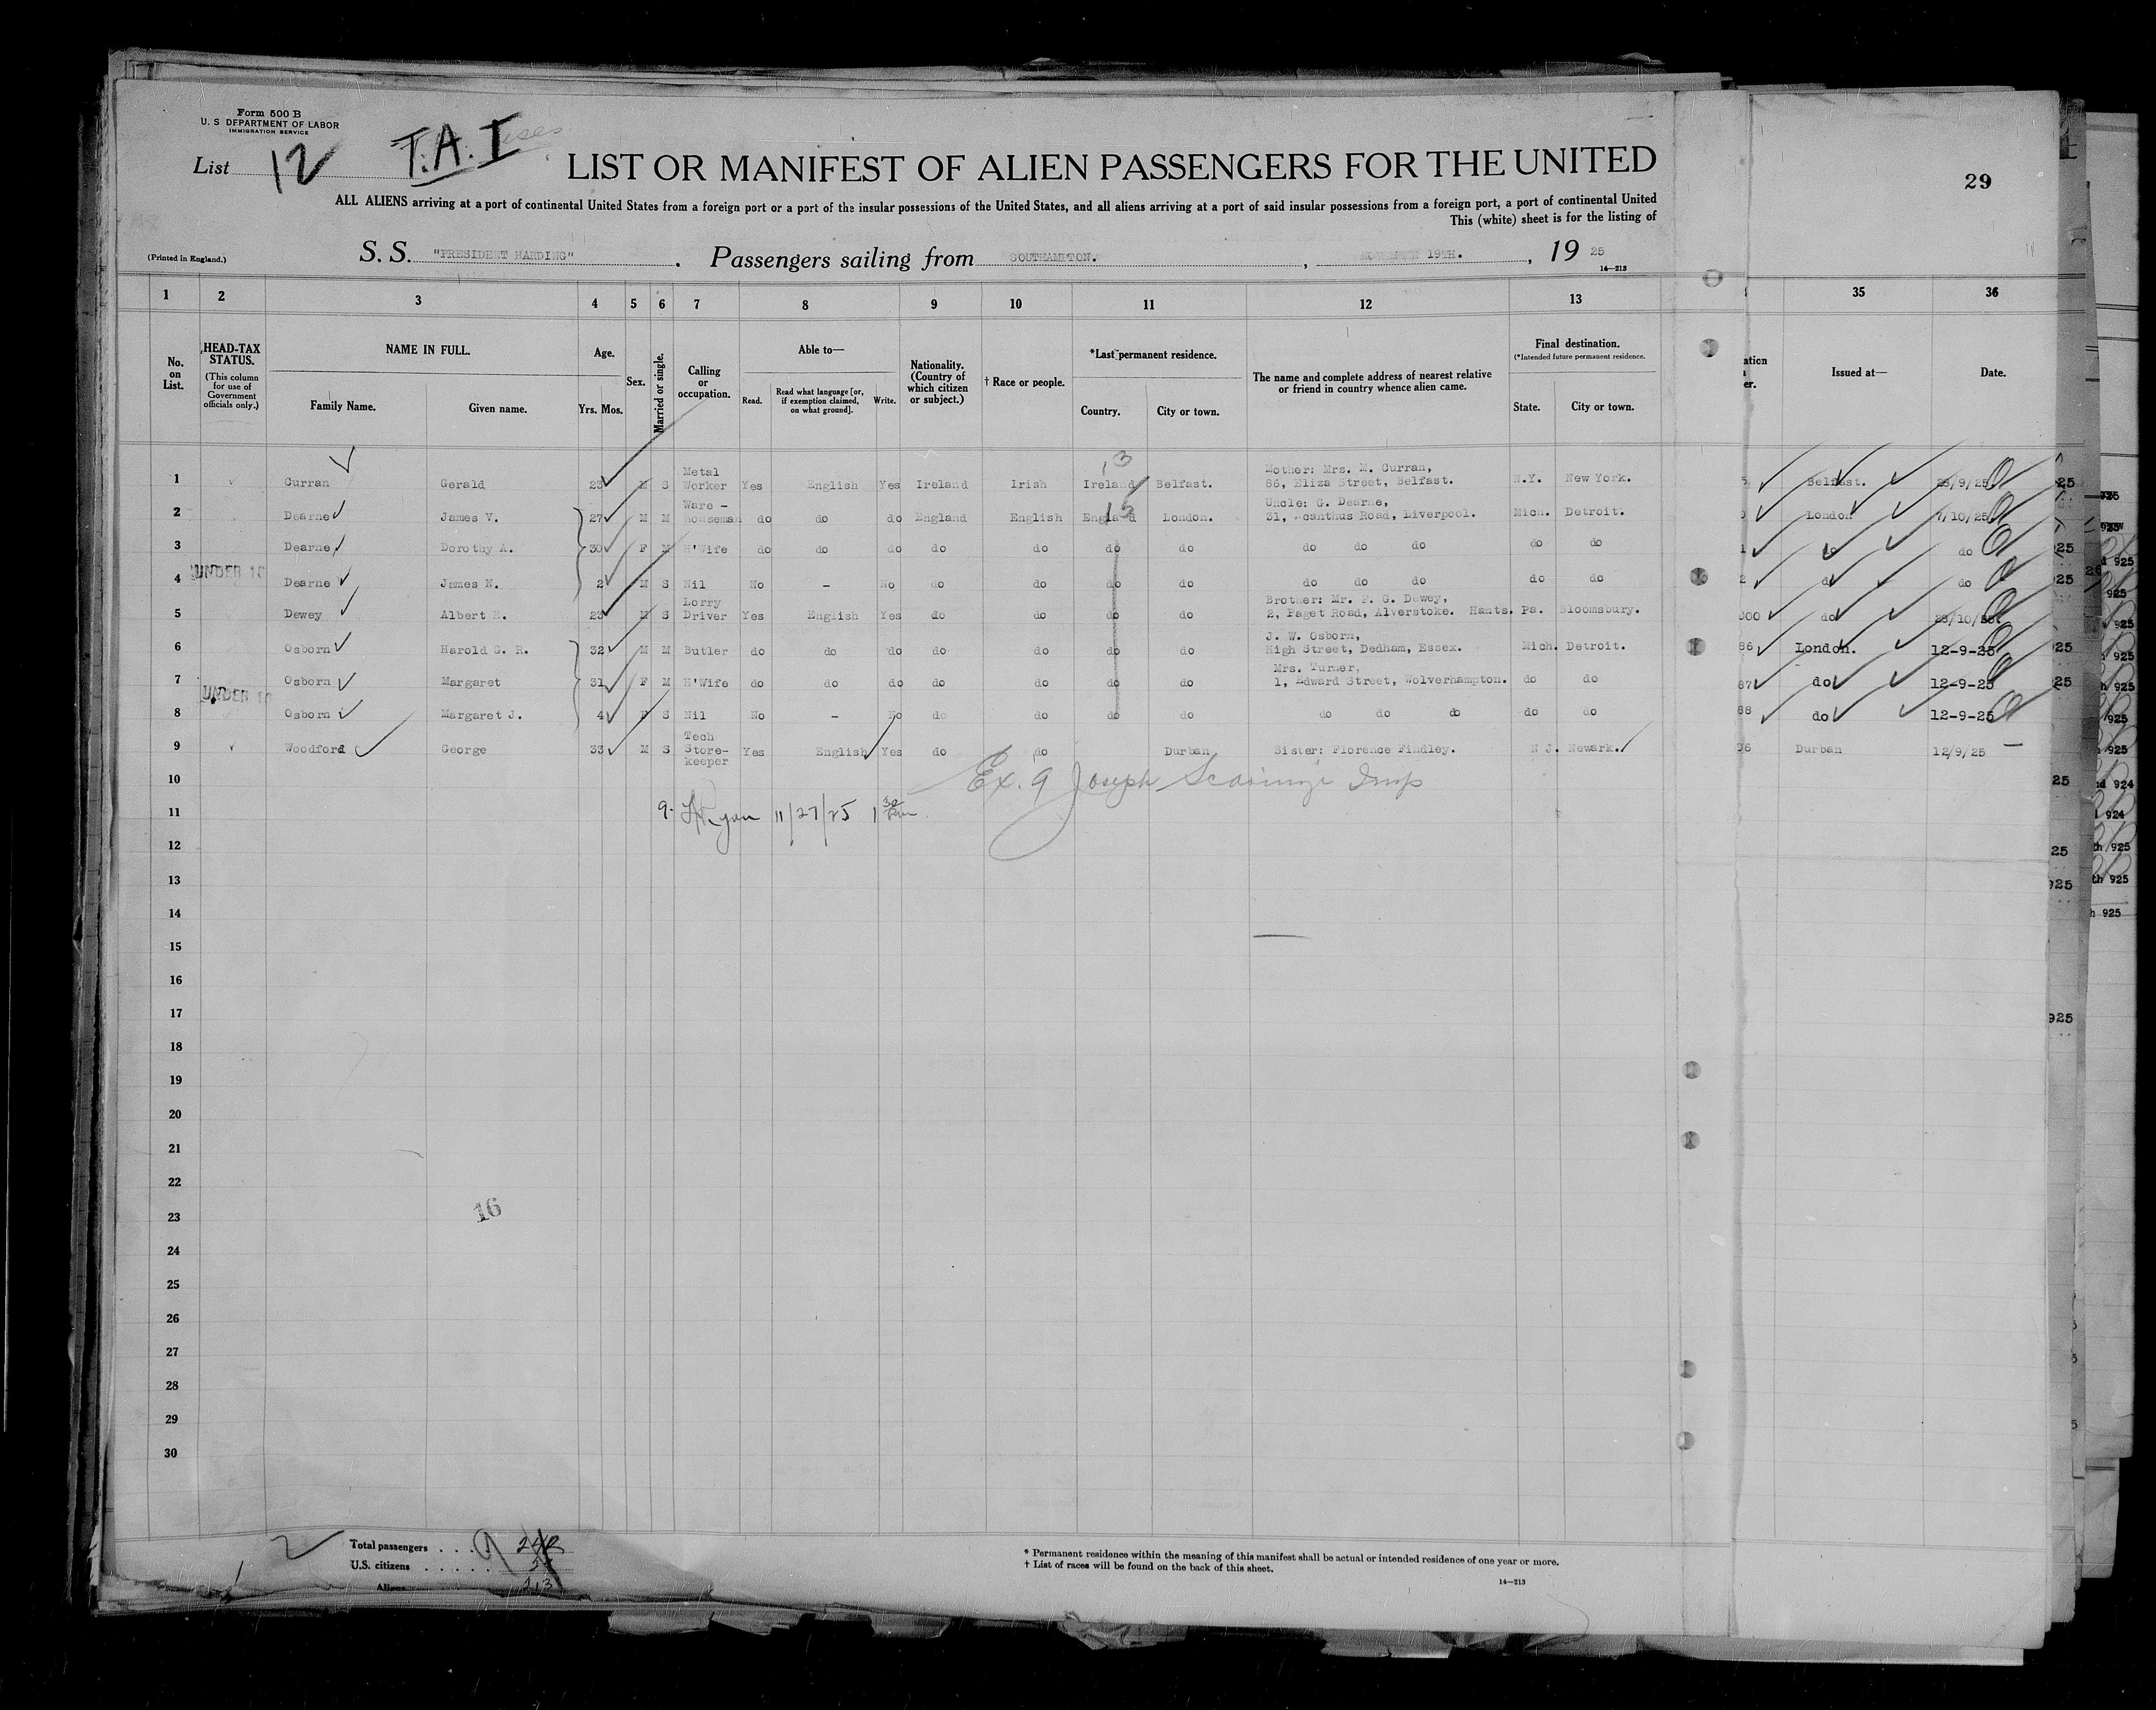 Form 500 B
U. S. DEPARTMENT OF LABOR
IMMIGRATION SERVICE
List 12 T.A.I
LIST OR MANIFEST OF ALIEN PASSENGERS FOR THE UNITED
29
ALL ALIENS arriving at a port of continental United States from a foreign port or a port of the insular possessions of the United States, and all aliens arriving at a port of said insular possessions from a foreign port, a port of continental United
This (white) sheet is for the listing of
(Printed in England.) S. S. "PRESIDENT HARDING" . Passengers sailing from SOUTHAMPTON. , NOVEMBER 19TH. , 19 25
14—213
1 2 3 4 5 6 7 8 9 10 11 12 13 35 36
No. on List. HEAD-TAX STATUS. (This column for use of Government officials only.) NAME IN FULL. Family Name. Given name. Age. Yrs. Mos. Sex. Married or single. Calling or occupation. Able to— Read. Read what language [or, if exemption claimed, on what ground]. Write. Nationality. (Country of which citizen or subject.) † Race or people. *Last permanent residence. Country. City or town. The name and complete address of nearest relative or friend in country whence alien came. Final destination. (*Intended future permanent residence. State. City or town. Issued at— Date.
13
1 Curran Gerald 23 M S Metal Worker Yes English Yes Ireland Irish Ireland Belfast. Mother: Mrs. M. Curran, 86, Eliza Street, Belfast. N.Y. New York. Belfast.
2 Dearne James V. 27 M M Ware - houseman do do do England English England London. Uncle: G. Dearne, 31, Acanthus Road, Liverpool. Mich. Detroit. London 7/10/25
3 Dearne Dorothy A. 30 F M H'Wife do do do do do do do do do do do do do do
UNDER 16
4 Dearne James N. 2 M S Nil No – No do do do do do do do do do do do
5 Dewey Albert 23 M S Lorry Driver Yes English Yes do do do do Brother: Mr. F. G. Dewey, 2, Paget Road, Alverstoke. Hants. Pa. Bloomsbury. 000 do
6 Osborn Harold G. R. 32 M M Butler do do do do do do do J. W. Osborn, High Street, Dedham, Essex. Mich. Detroit. 86 London. 12-9-25
7 Osborn Margaret 31 F M H'Wife do do do do do do do Mrs. Turner, 1, Edward Street, Wolverhampton. do do 87 do 12-9-25
UNDER 16
8 Osborn Margaret J. 4 F S Nil No – No do do do do do do do do do 88 do 12-9-25
9 Woodford George 33 M S Tech Store- keeper Yes English Yes do do Durban Sister: Florence Findley. N J. Newark. Durban 12/9/25 —
10 Ex. 9 Joseph
11 9. 11/27/25
12
13
14
15
16
17
18
19
20
21
22
23 16
24
25
26
27
28
29
30
Total passengers . . . 9
U.S. citizens . . . . .
Aliens
* Permanent residence within the meaning of this manifest shall be actual or intended residence of one year or more.
† List of races will be found on the back of this sheet.
14—213